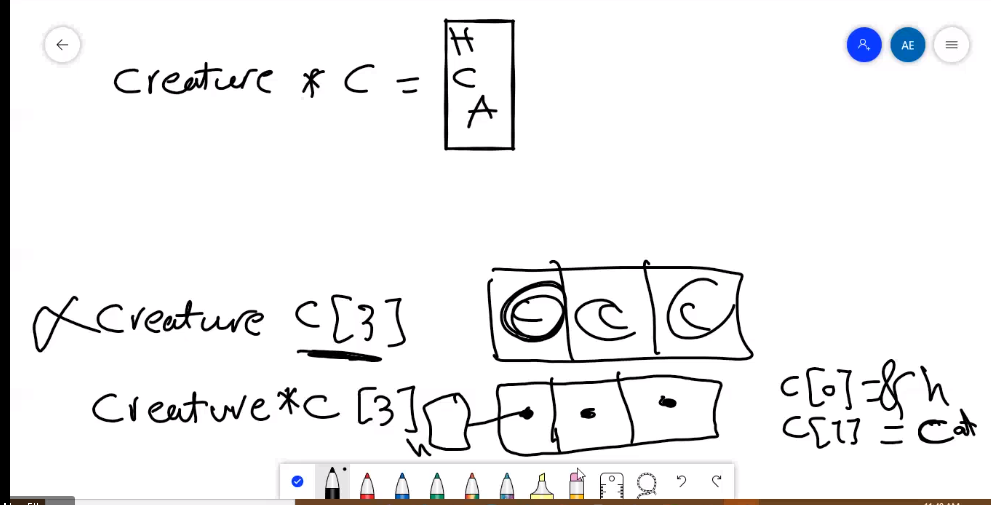 AE
Creature * C =
H
C
A
Creature C[3]
C C C
Creature *C [3]
h
C[0] = & h
C[1] = Cat